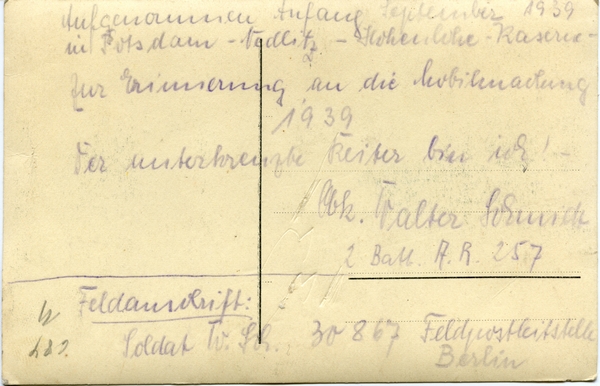 Aufgenommen Anfang September 1939
in Potsdam - Nedlitz - Hohenlohe - Kaserne -
Zur Erinnerung an die Mobilmachung
1939
Der unterkreuzte Reiter bin ich! -
Obk. Walter Schmidt
2 Batt. A.R. 257
Feldanschrift:
Soldat W. Sch. 30867 Feldpostleitstelle
Berlin